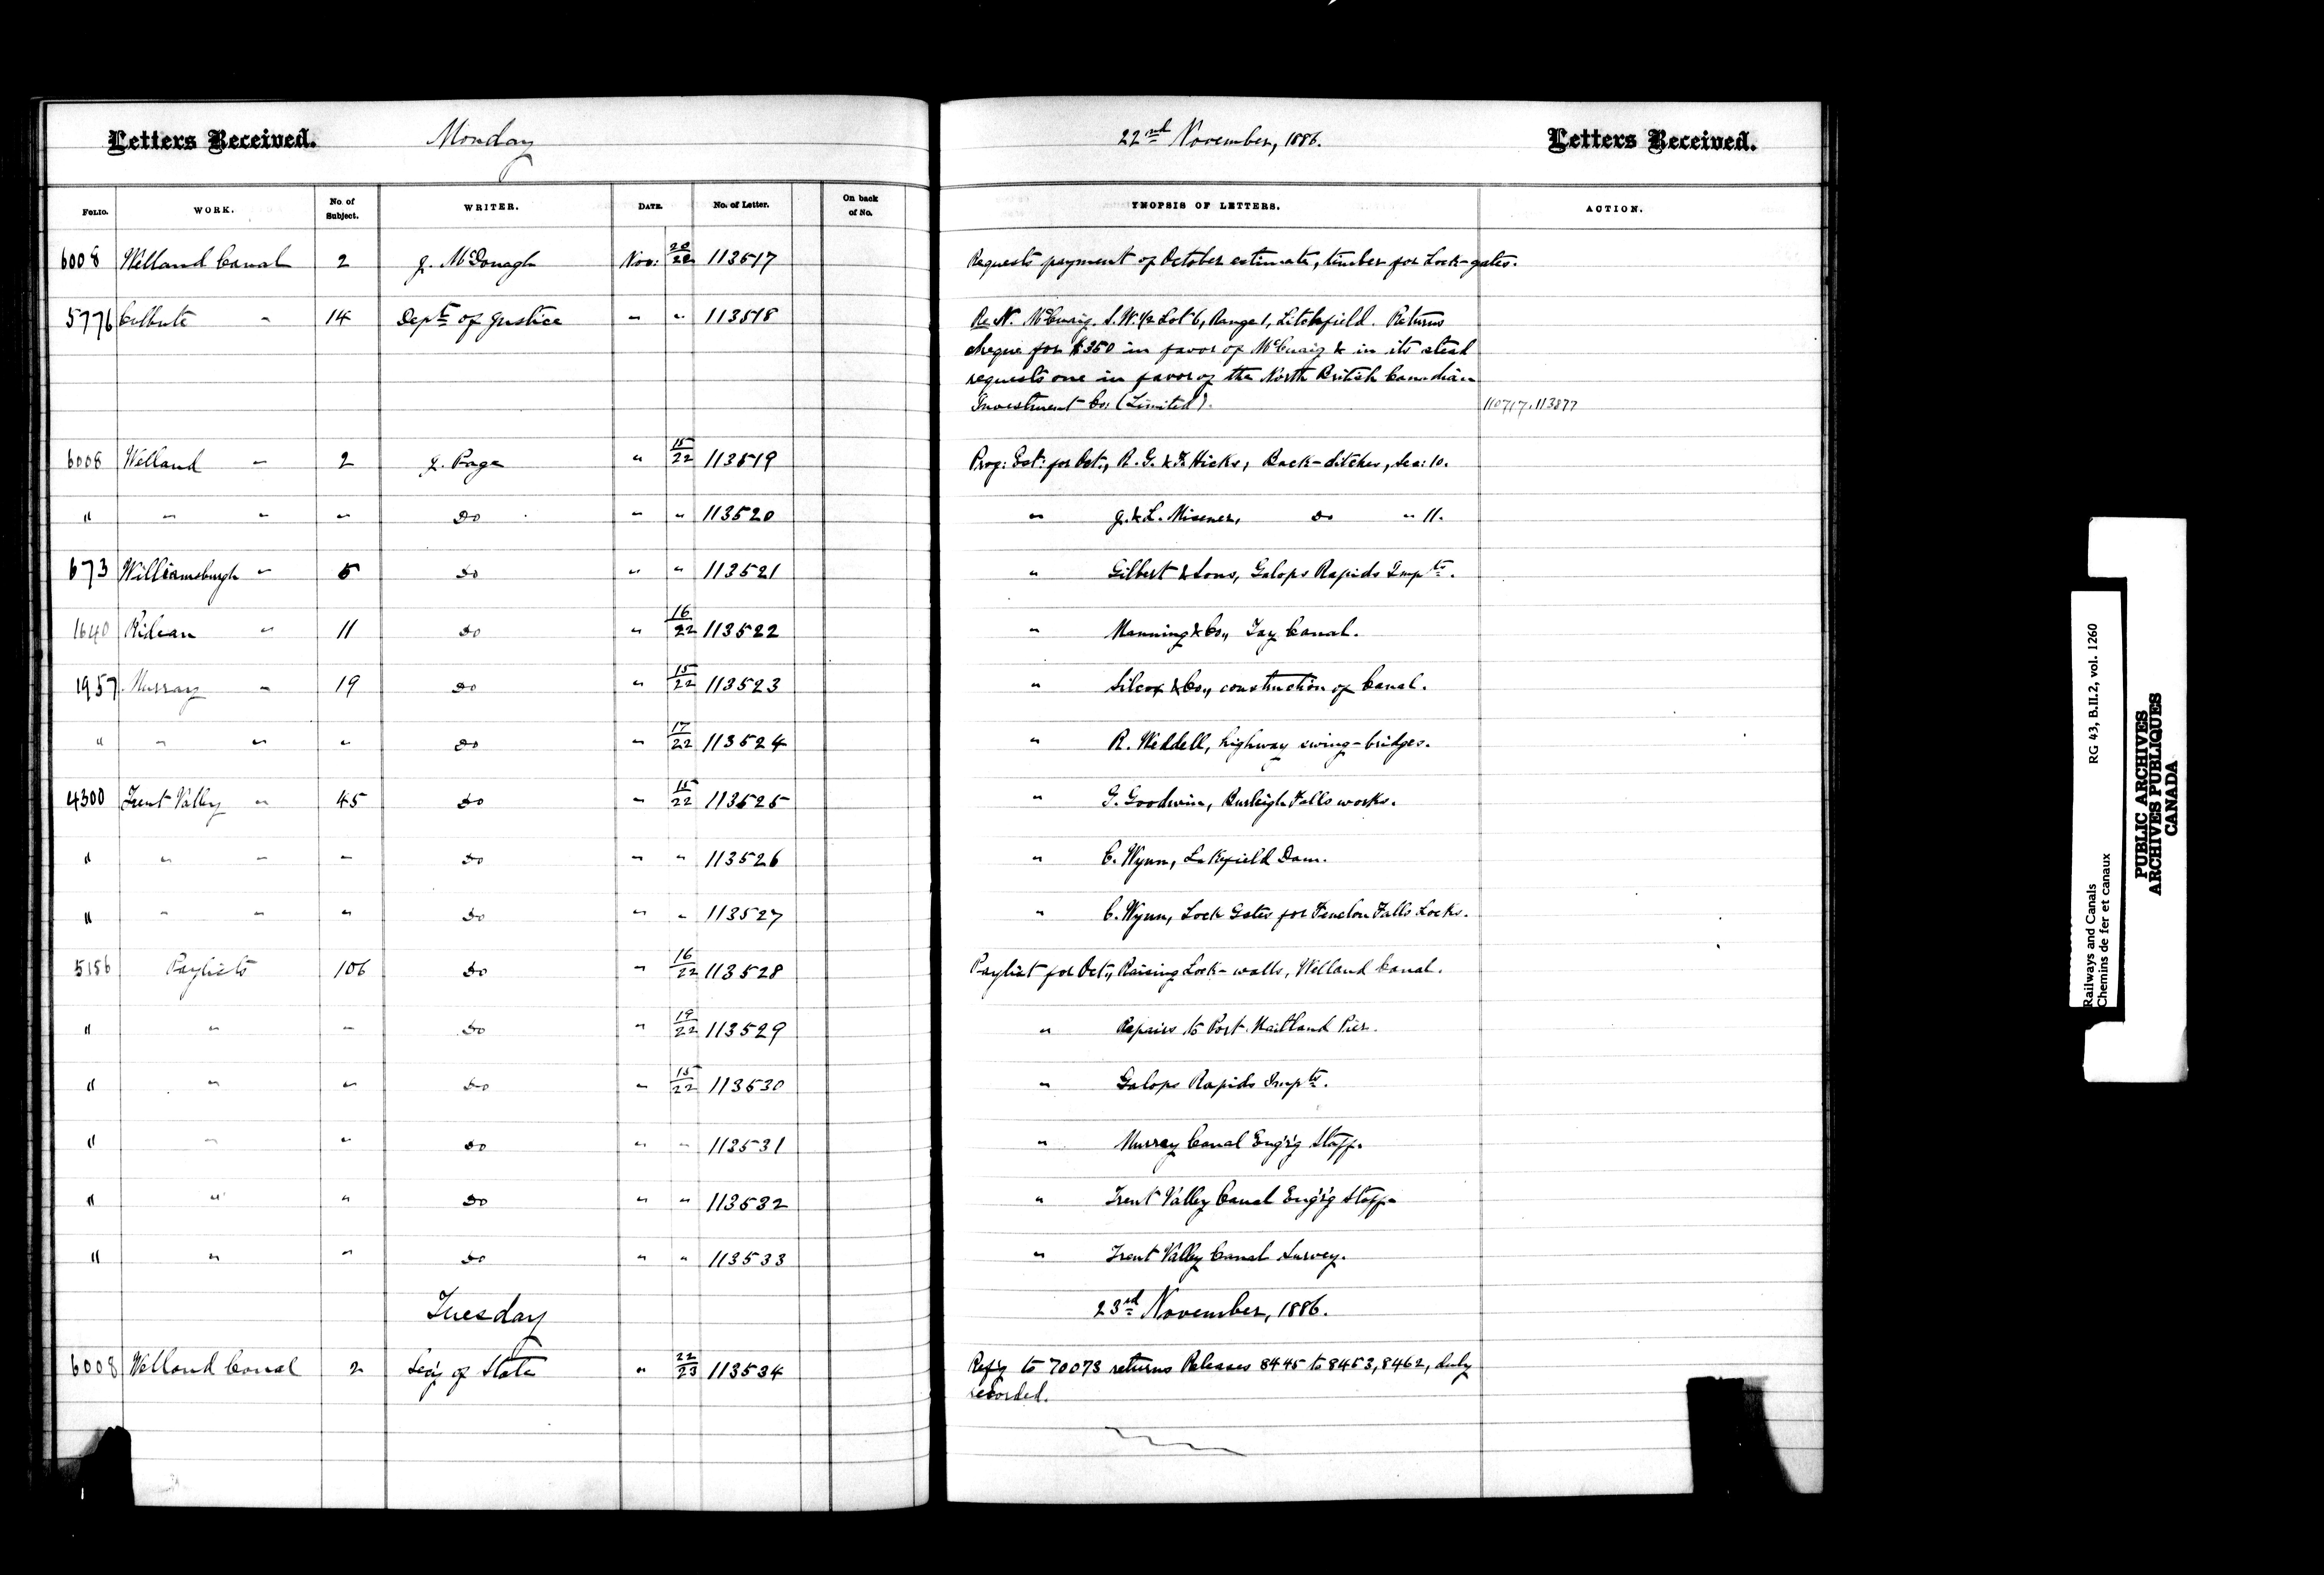 Letters Received. Monday 22nd November, 1886. Letters Received.
Folio. WORK. No. of Subject. WRITER. DATE. No. of Letter. On back of No. YNOPSIS OF LETTERS. ACTION.
6008 Welland Canal 2 J. McDonagh Nov: 20/22 113517 Requests payment of October estimate, timber for Lock-gates.
5776 Culbute " 14 Dept of Justice " " 113518 Re N. McCuaig. S.W. 1/2 Lot 6, Range 1, Litchfield. Returns
cheque for $350 in favor of McCuaig & in its stead
requests one in favor of the North British Canadian
Investment Co: (Limited). 110717.113877
6008 Welland " 2 J. Page " 15/22 113519 Prog: Est: for Oct:, R. G. & F. Hicks, Back-ditches, Sec: 10.
" " " " Do " " 113520 " J. & L. Misener, Do " 11.
673 Williamsburgh " 5 Do " " 113521 " Gilbert & Sons, Galops Rapids Impts.
1640 Rideau " 11 Do " 16/22 113522 " Manning & Co., Tay Canal.
1957 Murray " 19 Do " 15/22 113523 " Silcox & Co., construction of Canal.
" " " " Do " 17/22 113524 " R. Weddell, highway swing-bridges.
4300 Trent Valley " 45 Do " 15/22 113525 " G. Goodwin, Burleigh Falls works.
" " " " Do " " 113526 " C. Wynn, Lakefield Dam.
" " " " Do " " 113527 " C. Wynn, Lock Gates for Fenelon Falls Locks.
5156 Paylists 106 Do " 16/22 113528 Paylist for Oct:, Raising Lock-walls, Welland Canal.
" " " Do " 19/22 113529 " Repairs to Port Maitland Pier.
" " " Do " 15/22 113530 " Galops Rapids Impts.
" " " Do " " 113531 " Murray Canal Eng'r'g Staff.
" " " Do " " 113532 " Trent Valley Canal Eng'r'g Staff.
" " " Do " " 113533 " Trent Valley Canal Survey.
Tuesday 23rd November, 1886.
6008 Welland Canal 2 Sec'y of State " 22/23 113534 Ref'g to 70073 returns Releases 8445 to 8453, 8462, duly
recorded.
Railways and Canals RG 43, B.II.2, vol. 1260
Chemins de fer et canaux
PUBLIC ARCHIVES
ARCHIVES PUBLIQUES
CANADA